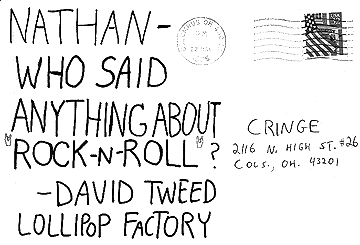 NATHAN-
WHO SAID
ANYTHING ABOUT
"ROCK-N-ROLL"?
-DAVID TWEED
LOLLIPOP FACTORY
CRINGE
2116 N. HIGH ST. #26
COLS., OH. 43201